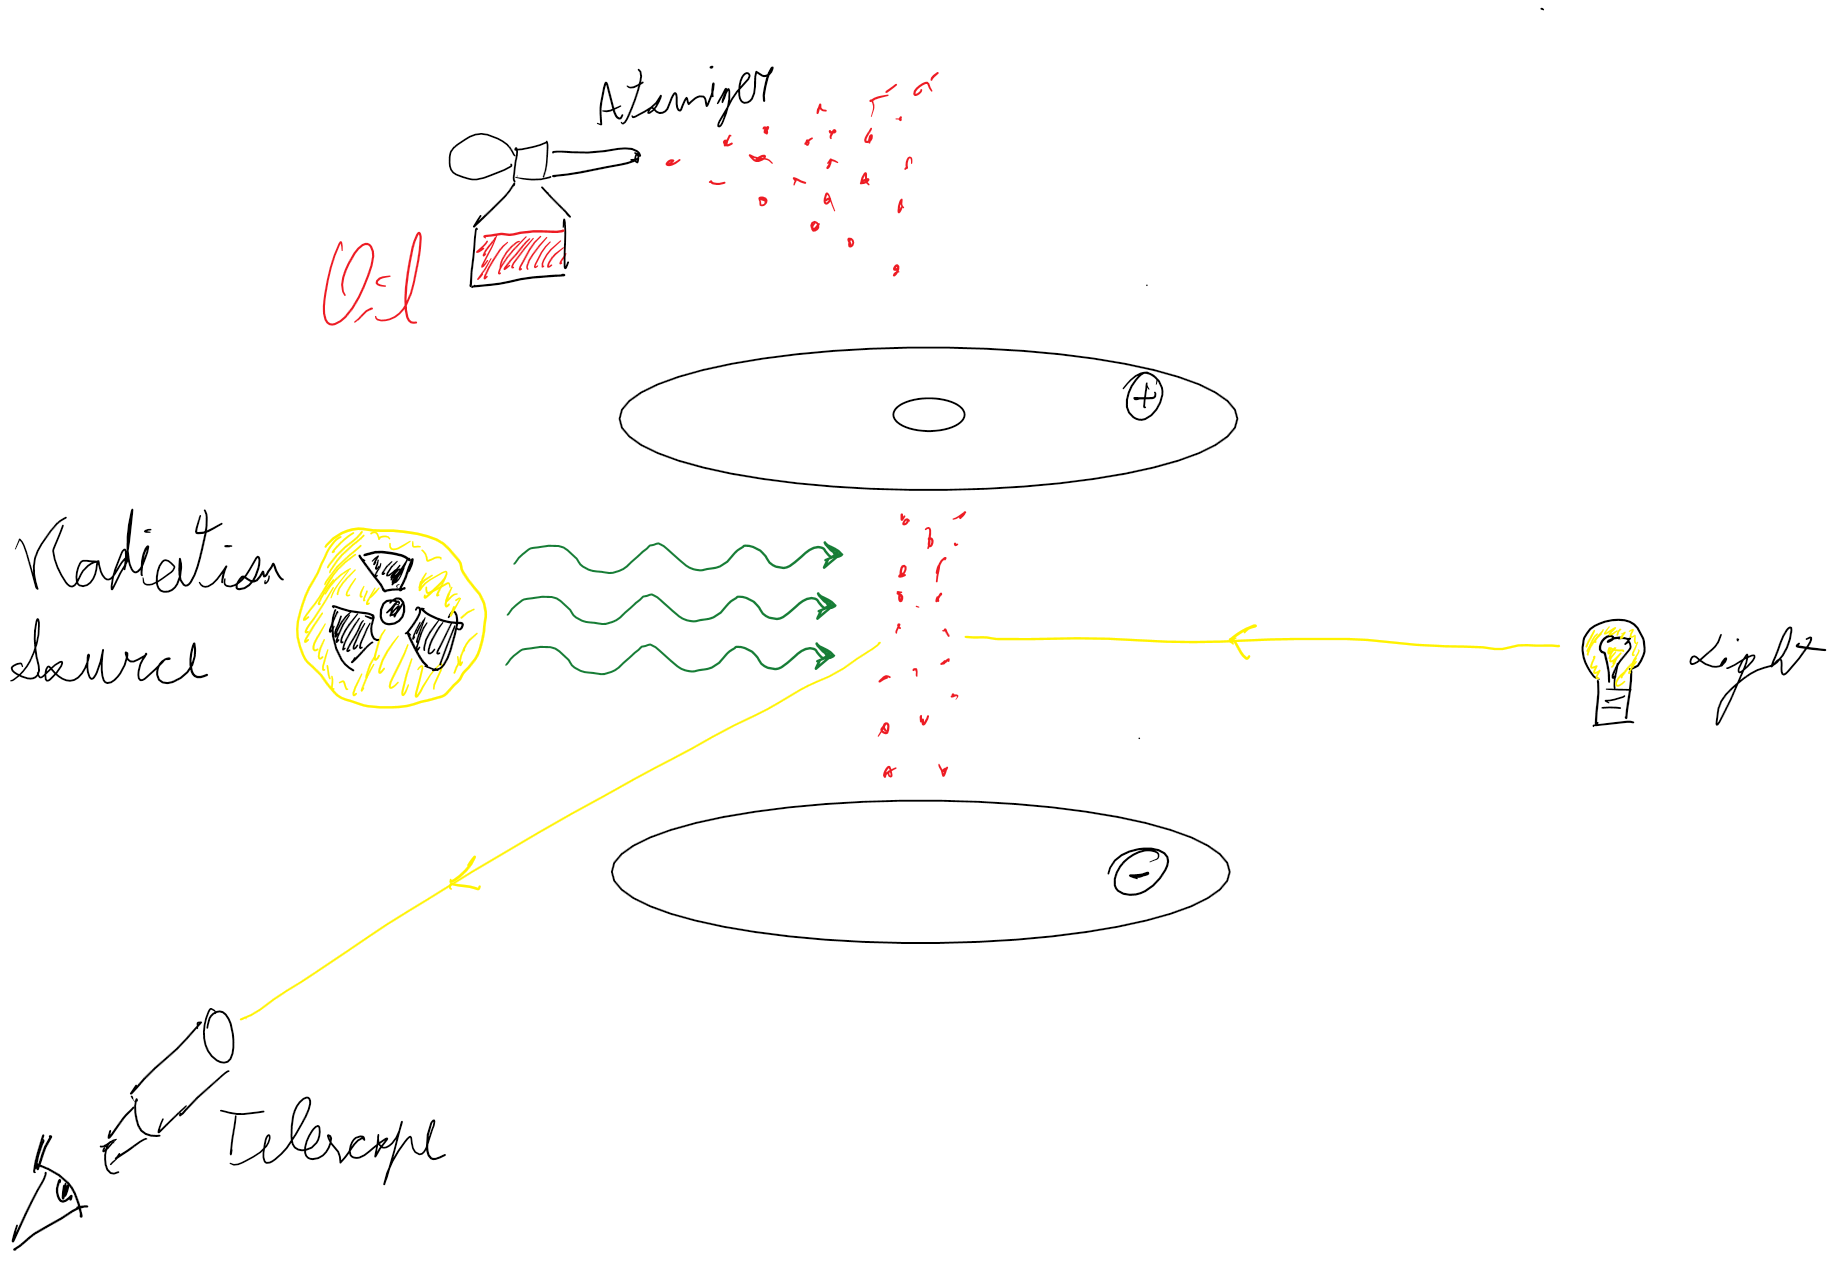 Atomizer
Oil
+
Radiation
Source
Light
-
Telescope